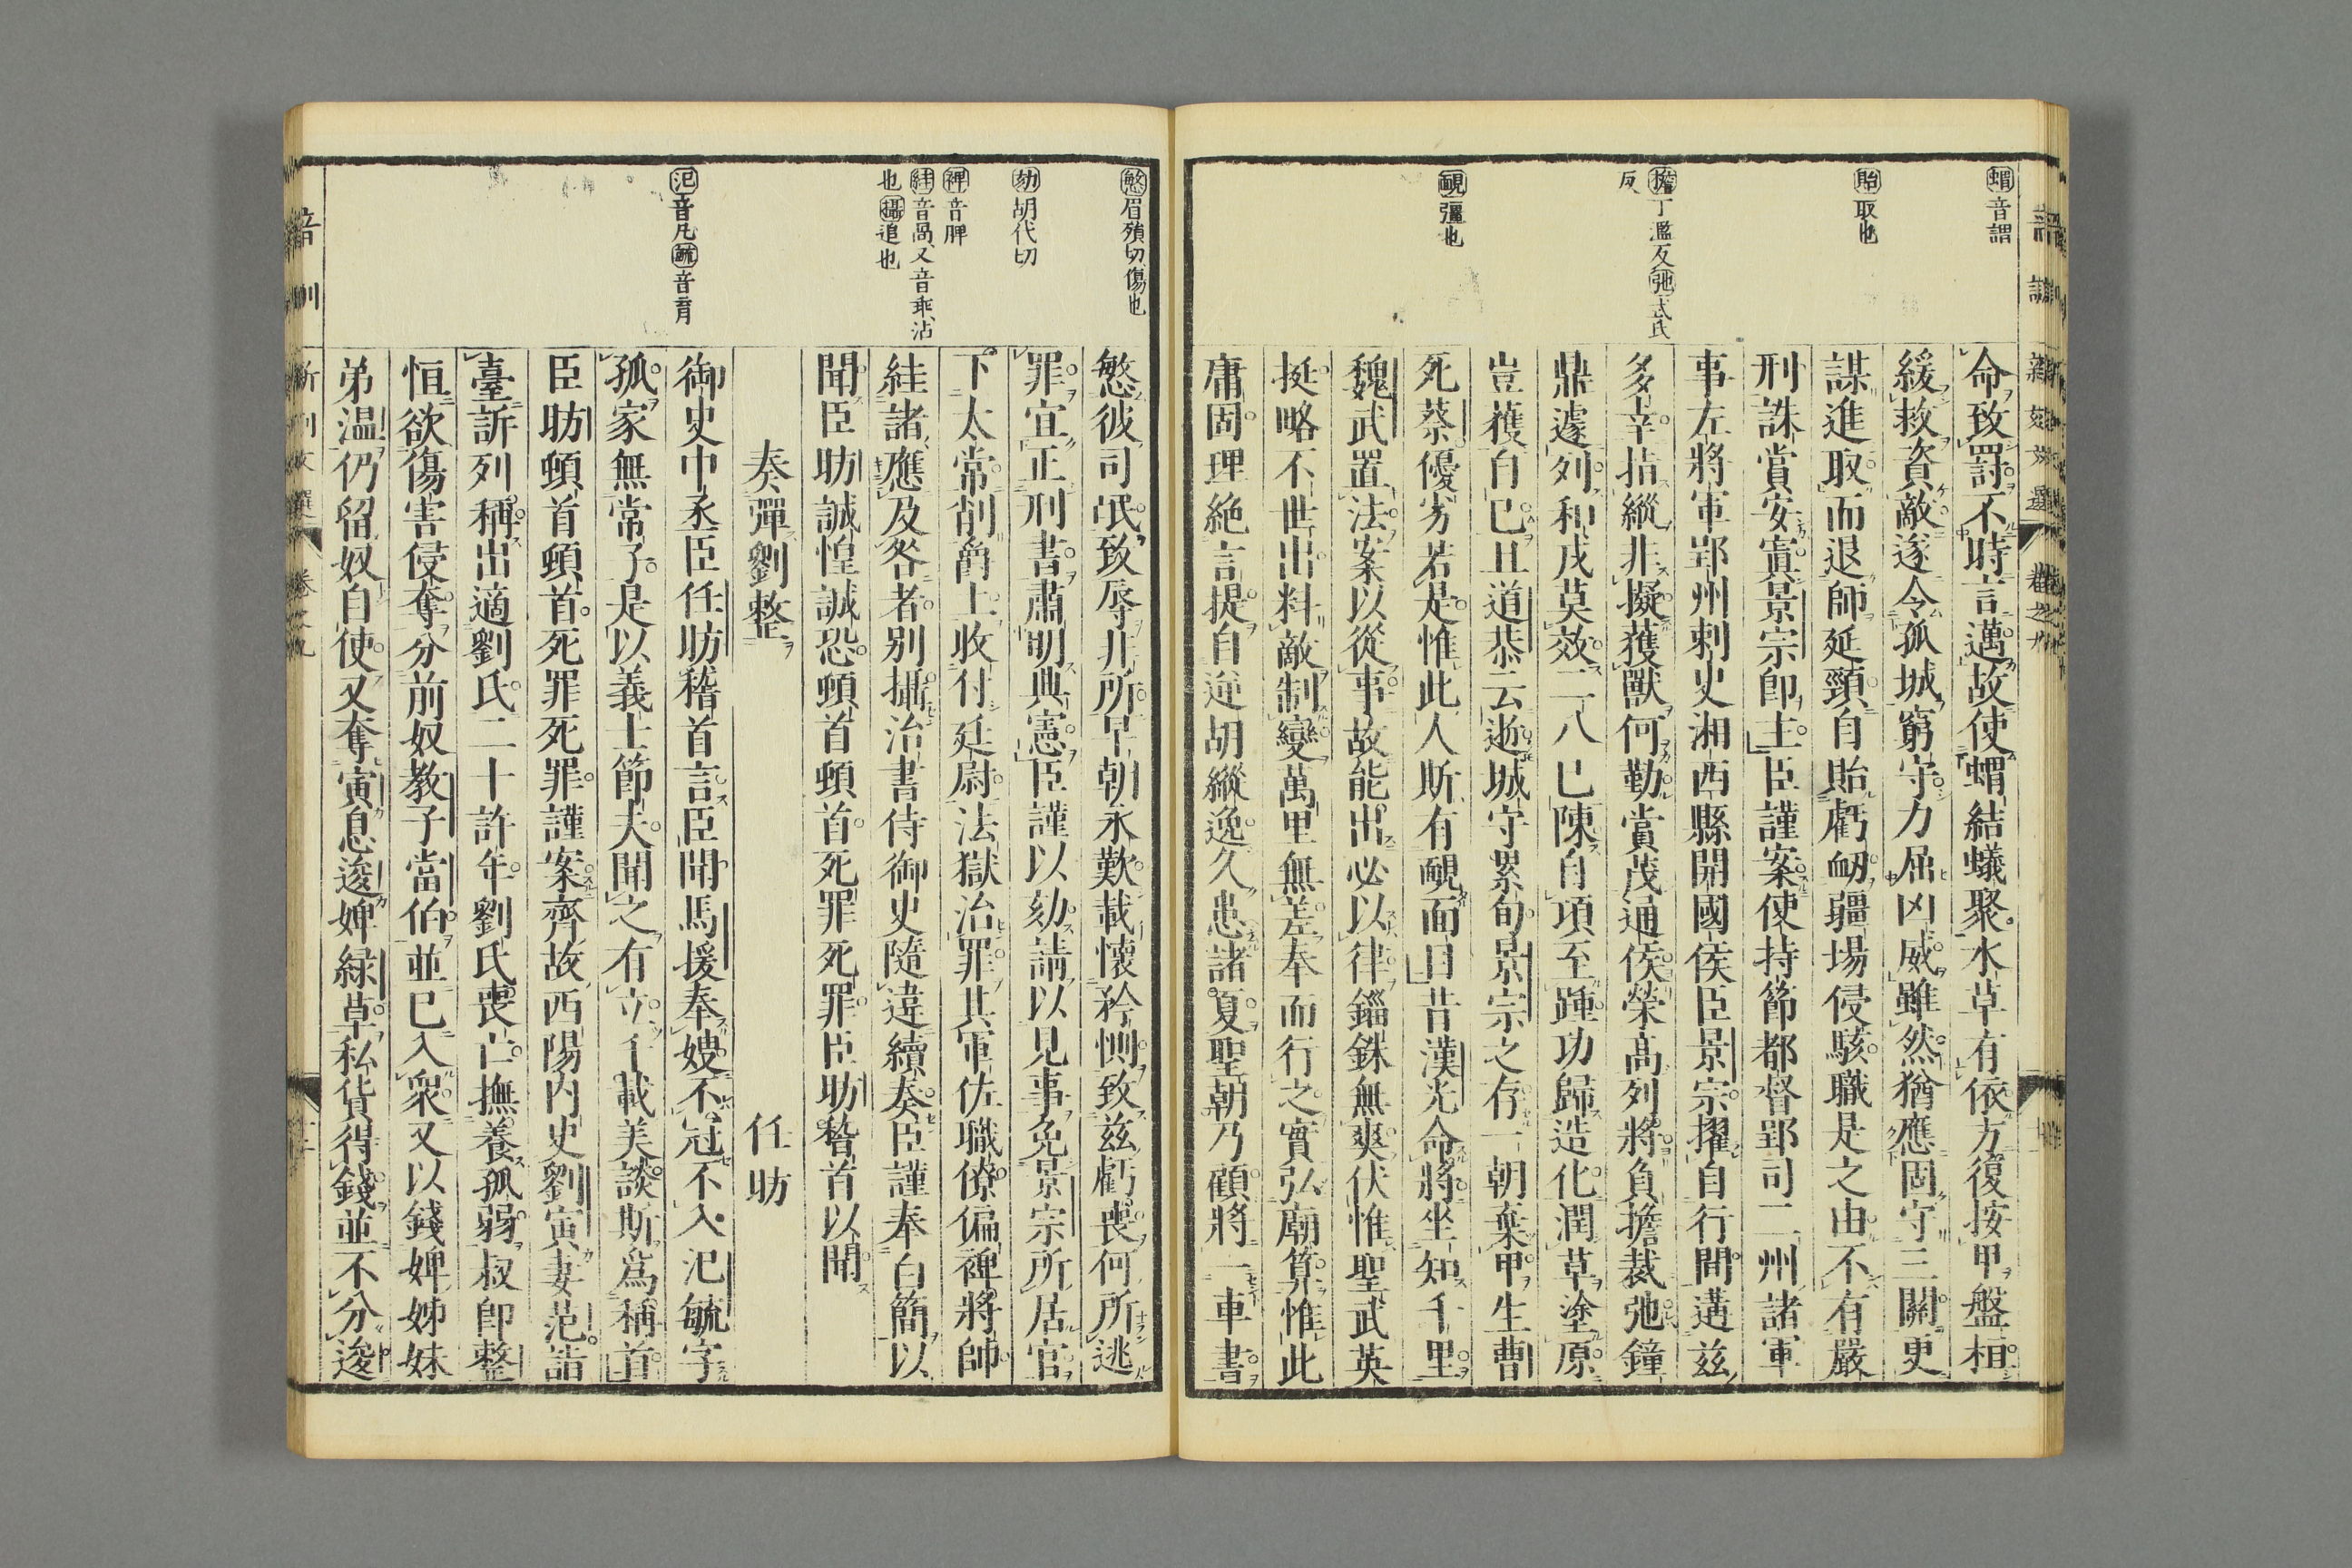 蝟音謂
貽取也
擔丁濫反弛式氏
反
靦彊也
命致罰不時言邁故使蝟結蟻聚水草有依方復按甲盤桓
緩救資敵遂令孤城窮守力屈凶威雖然猶應固守三關更
謀進取而退師延頸自貽虧衂疆場侵駭職是之由不有嚴
刑誅賞安寘景宗即主臣謹案使持節都督郢司二州諸軍
事左將軍郢州刺史湘西縣開國侯臣景宗擢自行間遘兹
多幸指縱非擬獲獸何勤賞茂通侯榮高列將負擔裁弛鐘
鼎遽列和戎莫效二八已陳自項至踵功歸造化潤草塗原
豈獲自已且道恭云逝城守累旬景宗之存一朝棄甲生曹
死蔡優劣若是惟此人斯有靦面目昔漢光命將坐知千里
魏武置法案以從事故能出必以律錙銖無爽伏惟聖武英
挺略不世出料敵制變萬里無差奉而行之實弘廟算惟此
庸固理絶言提自逆胡縱逸久患諸夏聖朝乃顧將一車書
慜眉殞切傷也
劾胡代切
裨音脾
絓音咼又音乖沾
也攝追也
汜音凡毓音育
慜彼司氓致辱非所早朝永歎載懷矜惻致兹虧喪何所逃
罪宜正刑書肅明典憲臣謹以劾請以見事免景宗所居官
下太常削爵土收付廷尉法獄治罪其軍佐職僚偏裨將帥
絓諸應及咎者别攝治書侍御史隨違續奏臣謹奉白簡以
聞臣昉誠惶誠恐頓首頓首死罪死罪臣昉稽首以聞
奏彈劉整　任昉
御史中丞臣任昉稽首言臣聞馬援奉嫂不冠不入汜毓字
孤家無常子是以義士節夫聞之有立千載美談斯爲稱首
臣昉頓首頓首死罪死罪謹案齊故西陽内史劉寅妻范詣
臺訴列稱出適劉氏二十許年劉氏喪亡撫養孤弱叔郎整
恒欲傷害侵奪分前奴教子當伯並已入衆又以錢婢姊妹
弟温仍留奴自使又奪寅息逡婢緑草私貨得錢並不分逡
音訓